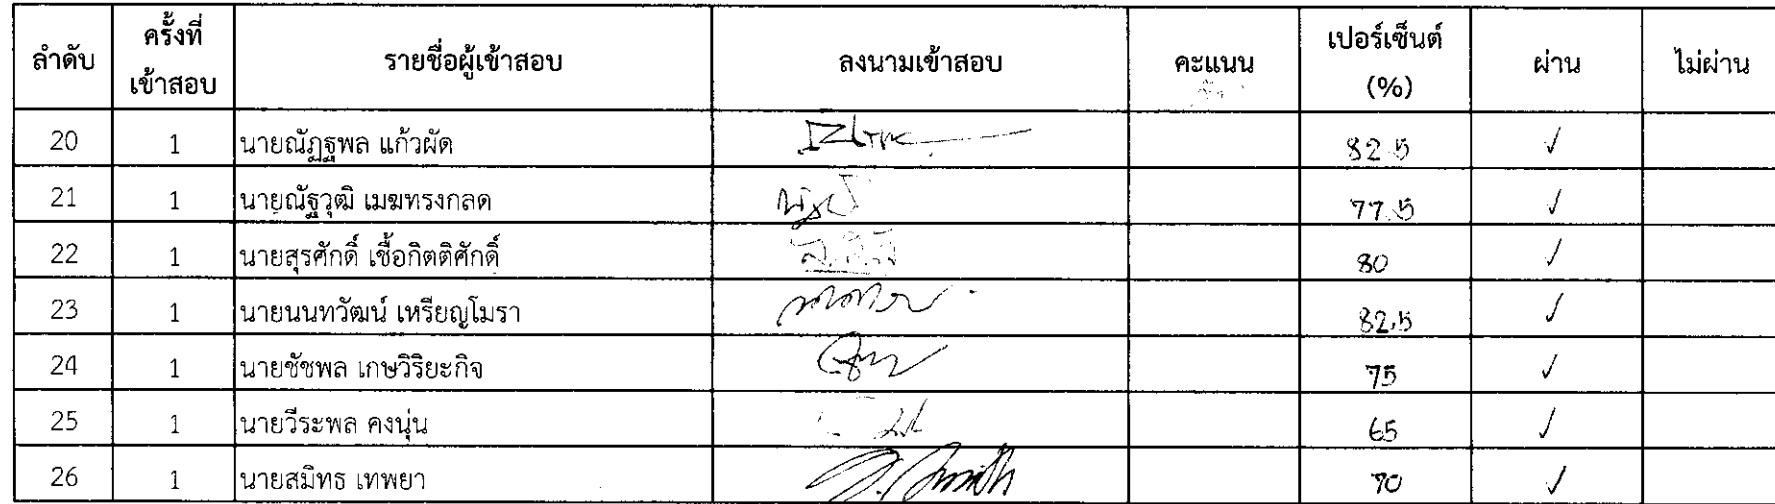 ลำดับ ครั้งที่เข้าสอบ รายชื่อผู้เข้าสอบ ลงนามเข้าสอบ คะแนน เปอร์เซ็นต์ (%) ผ่าน ไม่ผ่าน
20 1 นายณัฏฐพล แก้วผัด 82.5 ✓
21 1 นายณัฐวุฒิ เมฆทรงกลด 77.5 ✓
22 1 นายสุรศักดิ์ เชื้อกิตติศักดิ์ 80 ✓
23 1 นายนนทวัฒน์ เหรียญโมรา 82.5 ✓
24 1 นายชัชพล เกษวิริยะกิจ 75 ✓
25 1 นายวีระพล คงนุ่น 65 ✓
26 1 นายสมิทธ เทพยา 70 ✓